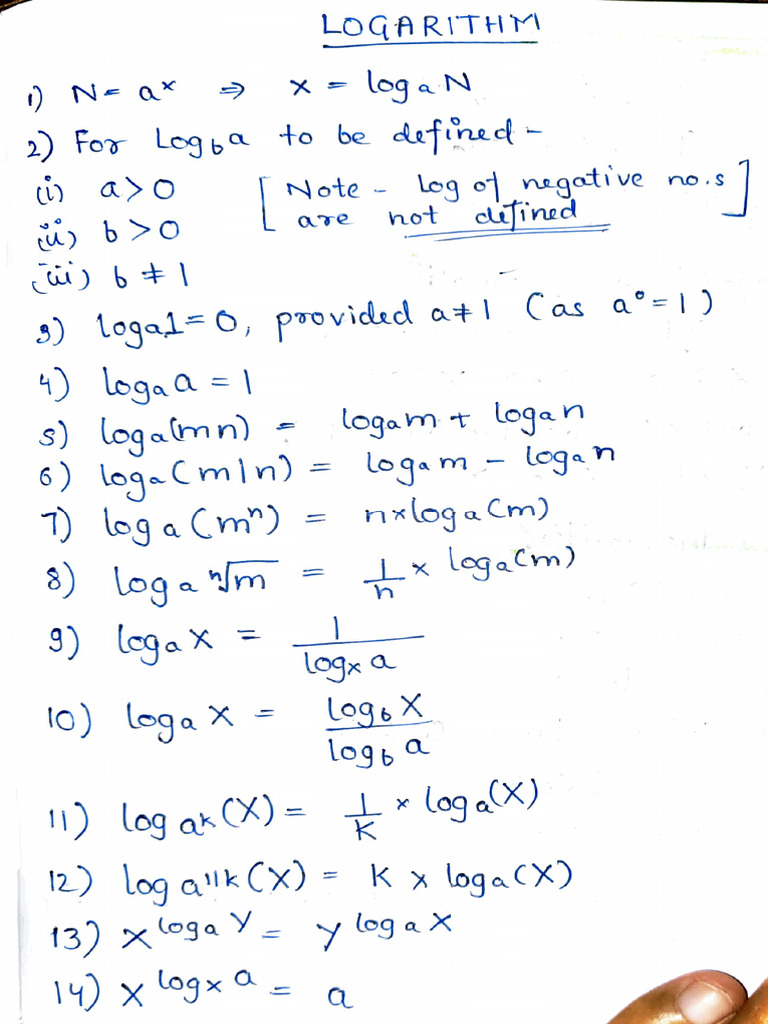 LOGARITHM
1) N = aˣ ⇒ x = logₐN
2) For Log_b a to be defined -
(i) a > 0 [Note - log of negative no.s
(ii) b > 0 are not defined]
(iii) b ≠ 1
3) logₐ1 = 0, provided a ≠ 1 (as a⁰ = 1)
4) logₐa = 1
5) logₐ(mn) = logₐm + logₐn
6) logₐ(m/n) = logₐm - logₐn
7) logₐ(mⁿ) = n × logₐ(m)
8) logₐ ⁿ√m = 1/n × logₐ(m)
9) logₐx = 1/logₓa
10) logₐx = log_b x / log_b a
11) log a^k (x) = 1/k × logₐ(x)
12) log a^1/k (x) = k × logₐ(x)
13) x^(logₐ y) = y^(logₐ x)
14) x^(logₓ a) = a